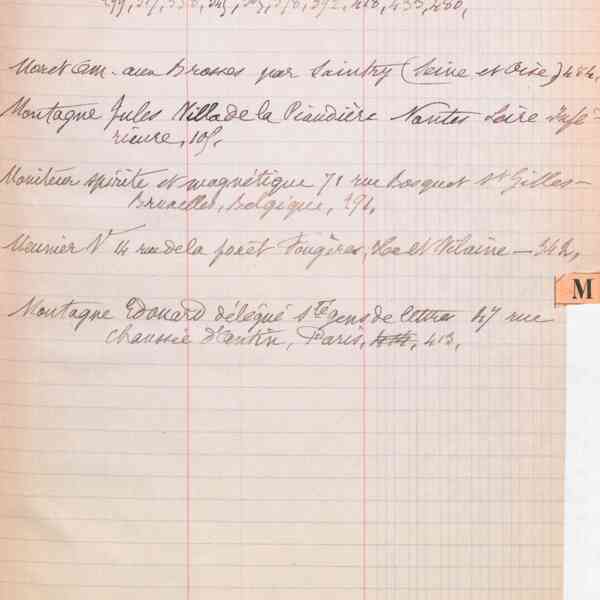 299, 317, 338, 345, 365, 378, 392, 418, 433, 480,
Moret Am. aux Brosses par Saintry (Seine et Oise) 484,
Montagne Jules Villa de la Piaudière Nantes Loire Infé-
rieure, 105,
Moniteur spirite et magnétique 71 rue Bosquet St Gilles-
Bruxelles, Belgique, 291,
Meunier Vr 14 rue de la forêt Fougères, Ile et Vilaine - 342,
M
Montagne Edouard délégué sté gens de lettres 47 rue
chaussée d'antin, Paris, 414, 413,